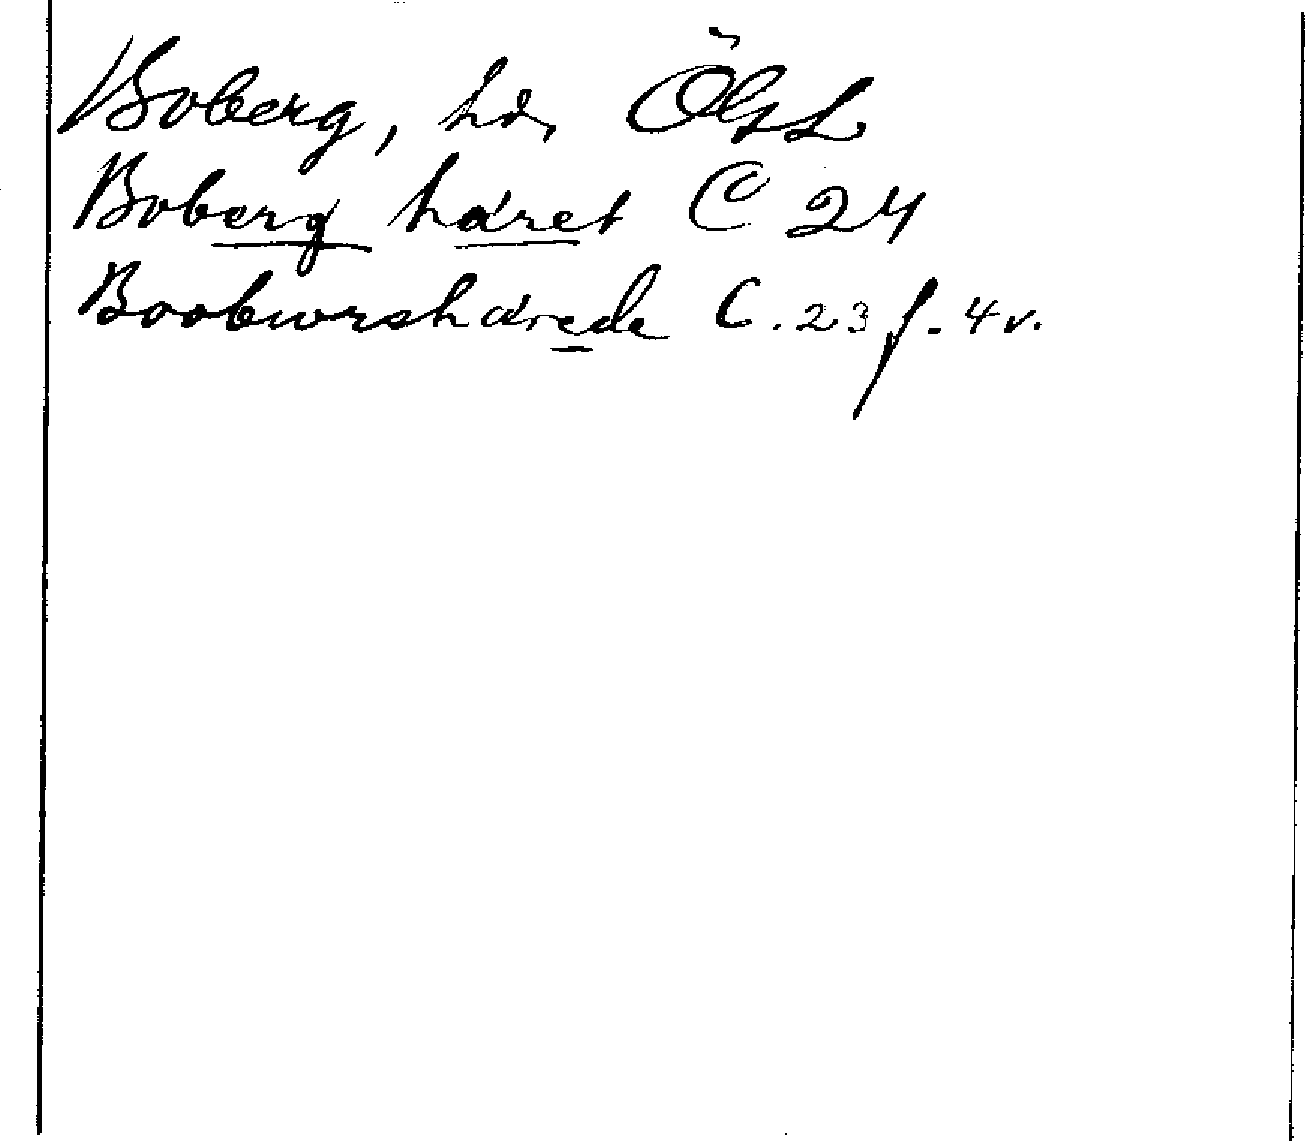 Boberg, hd, ÖgL
Boberg häret C 24
Boobwrshärede C. 23 f. 4v.